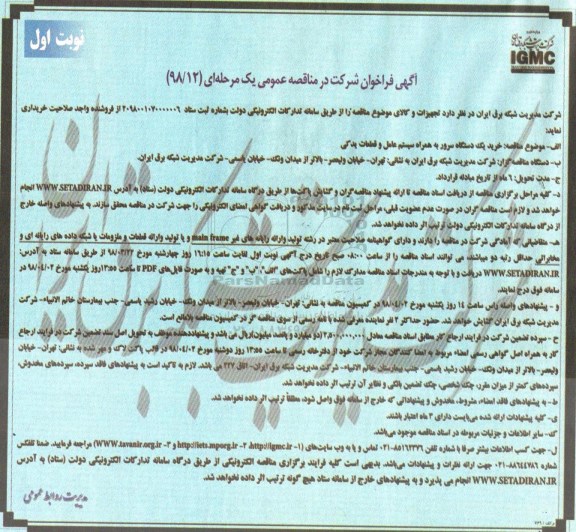 نوبت اول
شرکت مدیریت شبکه برق ایران
IGMC
آگهی فراخوان شرکت در مناقصه عمومی یک مرحله‌ای (۹۸/۱۲)
شرکت مدیریت شبکه برق ایران در نظر دارد تجهیزات و کالای موضوع مناقصه را از طریق سامانه تدارکات الکترونیکی دولت بشماره ثبت ستاد ۲۰۹۸۰۰۱۰۷۰۰۰۰۰۶ از فروشنده واجد صلاحیت خریداری
نماید:
الف- موضوع مناقصه: خرید یک دستگاه سرور به همراه سیستم عامل و قطعات یدکی
ب- دستگاه مناقصه‌گزار: شرکت مدیریت شبکه برق ایران به نشانی: تهران- خیابان ولیعصر- بالاتر از میدان ونک- خیابان یاسمی- شرکت مدیریت شبکه برق ایران.
ج- مدت تحویل: ۶ ماه از تاریخ مبادله قرارداد.
د- کلیه مراحل برگزاری مناقصه از دریافت اسناد مناقصه تا ارائه پیشنهاد مناقصه‌گران و گشایش پاکت‌ها از طریق درگاه سامانه تدارکات الکترونیکی دولت (ستاد) به آدرس WWW.SETADIRAN.IR انجام
خواهد شد و لازم است مناقصه‌گران در صورت عدم عضویت قبلی، مراحل ثبت نام در سایت مذکور و دریافت گواهی امضای الکترونیکی را جهت شرکت در مناقصه محقق سازند. به پیشنهادهای واصله خارج
از درگاه سامانه تدارکات الکترونیکی دولت ترتیب اثر داده نخواهد شد.
هـ- متقاضیانی که آمادگی شرکت در مناقصه را دارند و دارای گواهینامه صلاحیت معتبر در رشته تولید وارائه رایانه های غیر main frame و یا تولید وارائه قطعات و ملزومات یا شبکه داده های رایانه ای و
مخابراتی حداقل رتبه دو میباشند، می توانند اسناد مناقصه را از ساعت ۸:۰۰ صبح تاریخ درج آگهی نوبت اول لغایت ساعت ۱۶:۱۵ روز چهارشنبه مورخ ۹۸/۰۳/۲۲ از طریق سامانه ستاد به آدرس:
WWW.SETADIRAN.IR دریافت و با توجه به مندرجات اسناد مناقصه مدارک لازم را شامل پاکت‌های "الف"، "ب" و "ج" تهیه و به صورت فایل‌های PDF تا ساعت ۱۳:۵۵ روز یکشنبه مورخ ۹۸/۰۴/۰۲ در
سامانه فوق درج نمایند.
و- پیشنهادهای واصله رأس ساعت ۱۴ روز یکشنبه مورخ ۹۸/۰۴/۰۲ در کمیسیون مناقصه به نشانی: تهران- خیابان ولیعصر- بالاتر از میدان ونک- خیابان رشید یاسمی- جنب بیمارستان خاتم الانبیاء- شرکت
مدیریت شبکه برق ایران گشایش خواهند شد. حضور حداکثر ۲ نفر نماینده معرفی شده با نامه رسمی از سوی مناقصه گر در کمیسیون مناقصه بلامانع است.
ح- سپرده تضمین شرکت در فرایند ارجاع کار مطابق اسناد مناقصه معادل ۲,۵۰۰,۰۰۰,۰۰۰ (دو میلیارد و پانصد میلیون) ریال می باشد و پیشنهاددهنده موظف به تحویل اصل سند تضمین شرکت در فرایند ارجاع
کار به همراه اصل گواهی رسمی امضاء مربوط به امضاء کنندگان مجاز شرکت خود از دفترخانه رسمی تا ساعت ۱۳:۵۵ روز دوشنبه مورخ ۹۸/۰۴/۰۲ در قالب پاکت لاک و مهر شده به نشانی: تهران- خیابان
ولیعصر- بالاتر از میدان ونک- خیابان رشید یاسمی- جنب بیمارستان خاتم الانبیاء- شرکت مدیریت شبکه برق ایران- اتاق ۲۲۷ می باشد. لازم به تاکید است به پیشنهادهای فاقد سپرده، سپرده‌های مخدوش،
سپرده‌های کمتر از میزان مقرر، چک شخصی، چک تضمین بانکی و نظایر آن ترتیب اثر داده نخواهد شد.
ط- به پیشنهادهای فاقد امضاء، مشروط، مخدوش و پیشنهاداتی که خارج از سامانه فوق واصل شود، مطلقاً ترتیب اثر داده نخواهد شد.
ی- کلیه پیشنهادات ارائه شده می‌بایست دارای ۳ ماه اعتبار باشند.
ک- سایر اطلاعات و جزئیات مربوطه در اسناد مناقصه موجود می‌باشد.
ل- جهت کسب اطلاعات بیشتر صرفا با شماره تلفن ۸۵۱۶۲۳۳۶-۰۲۱ تماس و یا به وب سایت‌های (۱- http://igmc.ir، ۲- http://iets.mporg.ir و ۳- WWW.tavanir.org.ir) مراجعه فرمایید. ضمنا تلفکس
شماره ۸۸۶۴۴۷۸۶-۰۲۱ جهت ارائه نظرات و پیشنهادات می‌باشد. بدیهی است کلیه فرایند برگزاری مناقصه الکترونیکی از طریق درگاه سامانه تدارکات الکترونیکی دولت (ستاد) به آدرس
WWW.SETADIRAN.IR انجام می پذیرد و به پیشنهادهای خارج از سامانه ستاد هیچ گونه ترتیب اثر داده نخواهد شد.
مدیریت روابط عمومی
ParsNamadData